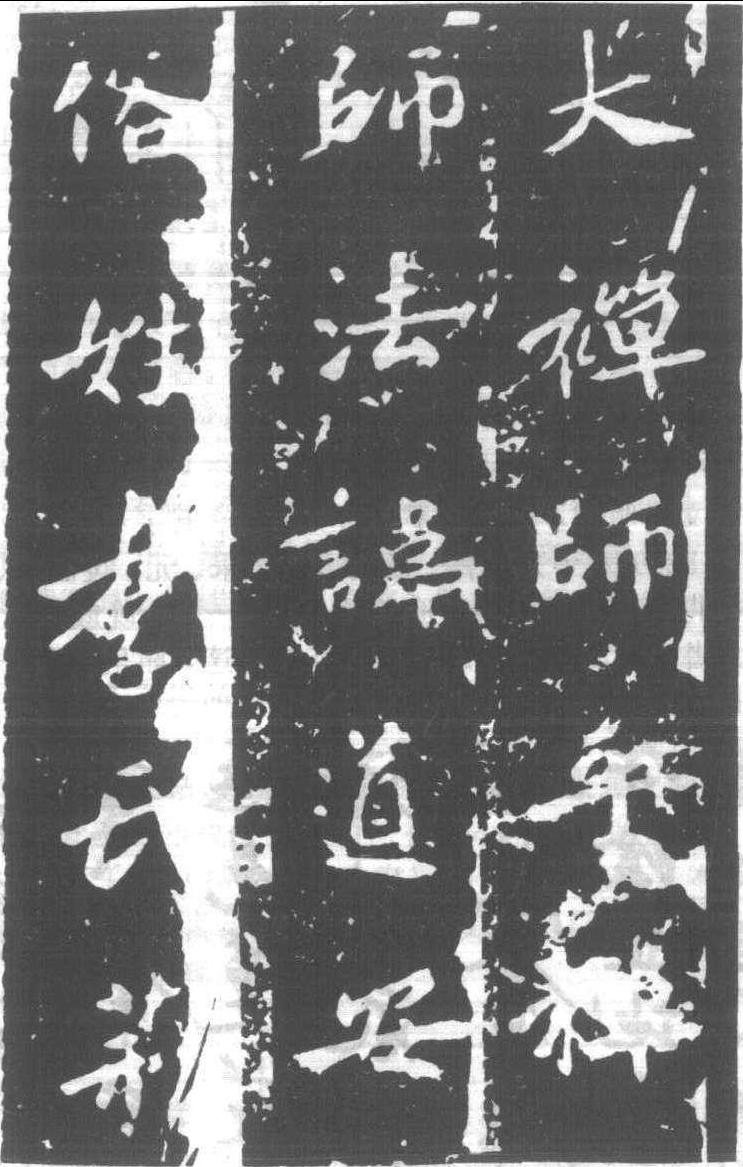 大禪師
師法諱道安
俗姓李氏荊